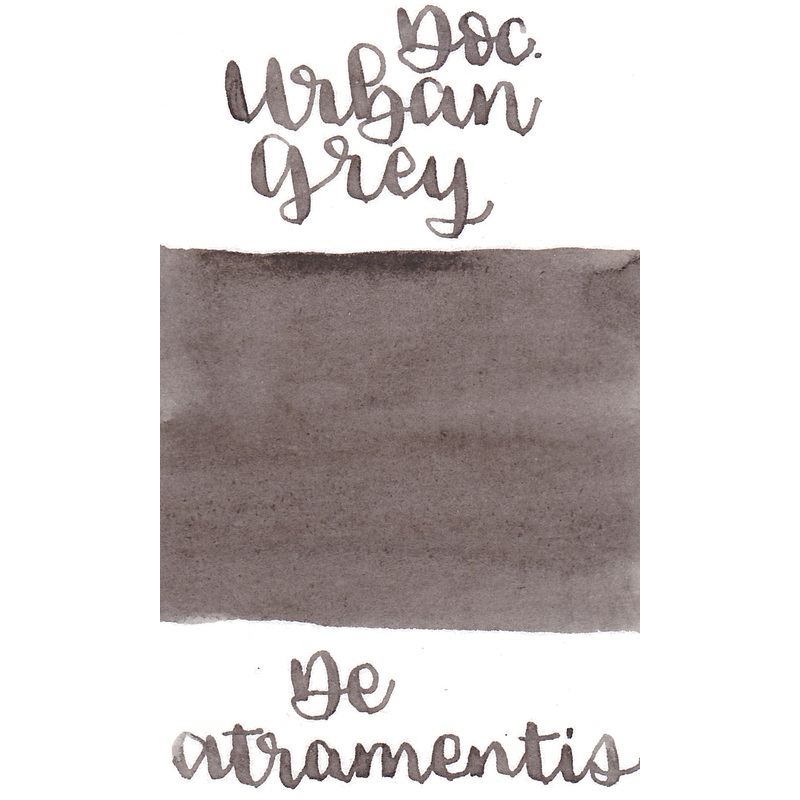 Doc.
Urban
Grey
De
atramentis